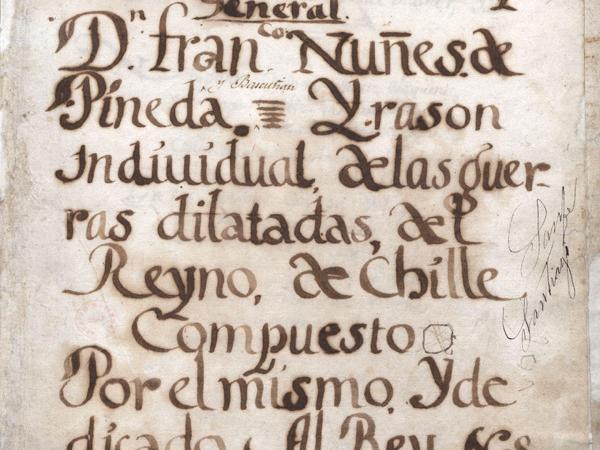 General
Dn. fran.co Nuñes de
y Bascuñan
Pineda. Y. rason
Indiuidual, de las guer-
ras dilatadas, del
Reyno, de Chille
Compuesto
Por el mismo, Y de
dicado, Al Rey
Santiago